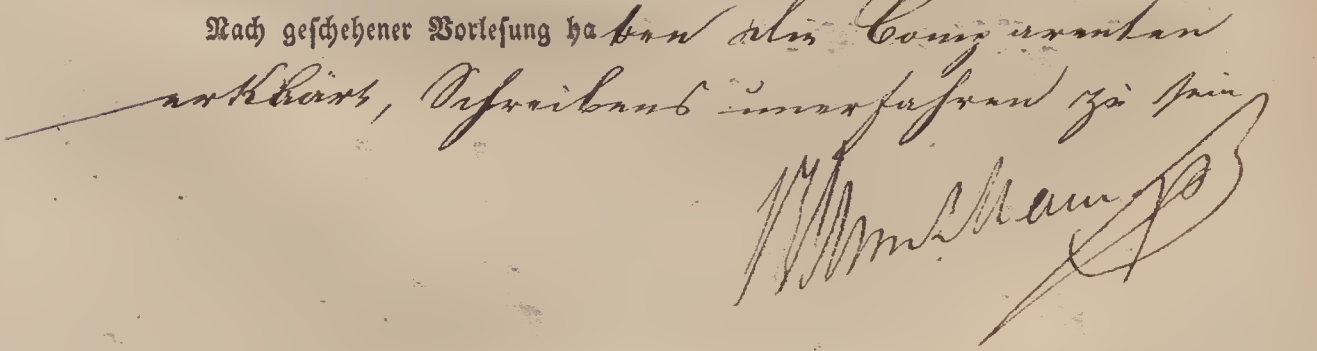 Nach geschehener Vorlesung haben die Comparenten
erklärt, Schreibens unerfahren zu sein